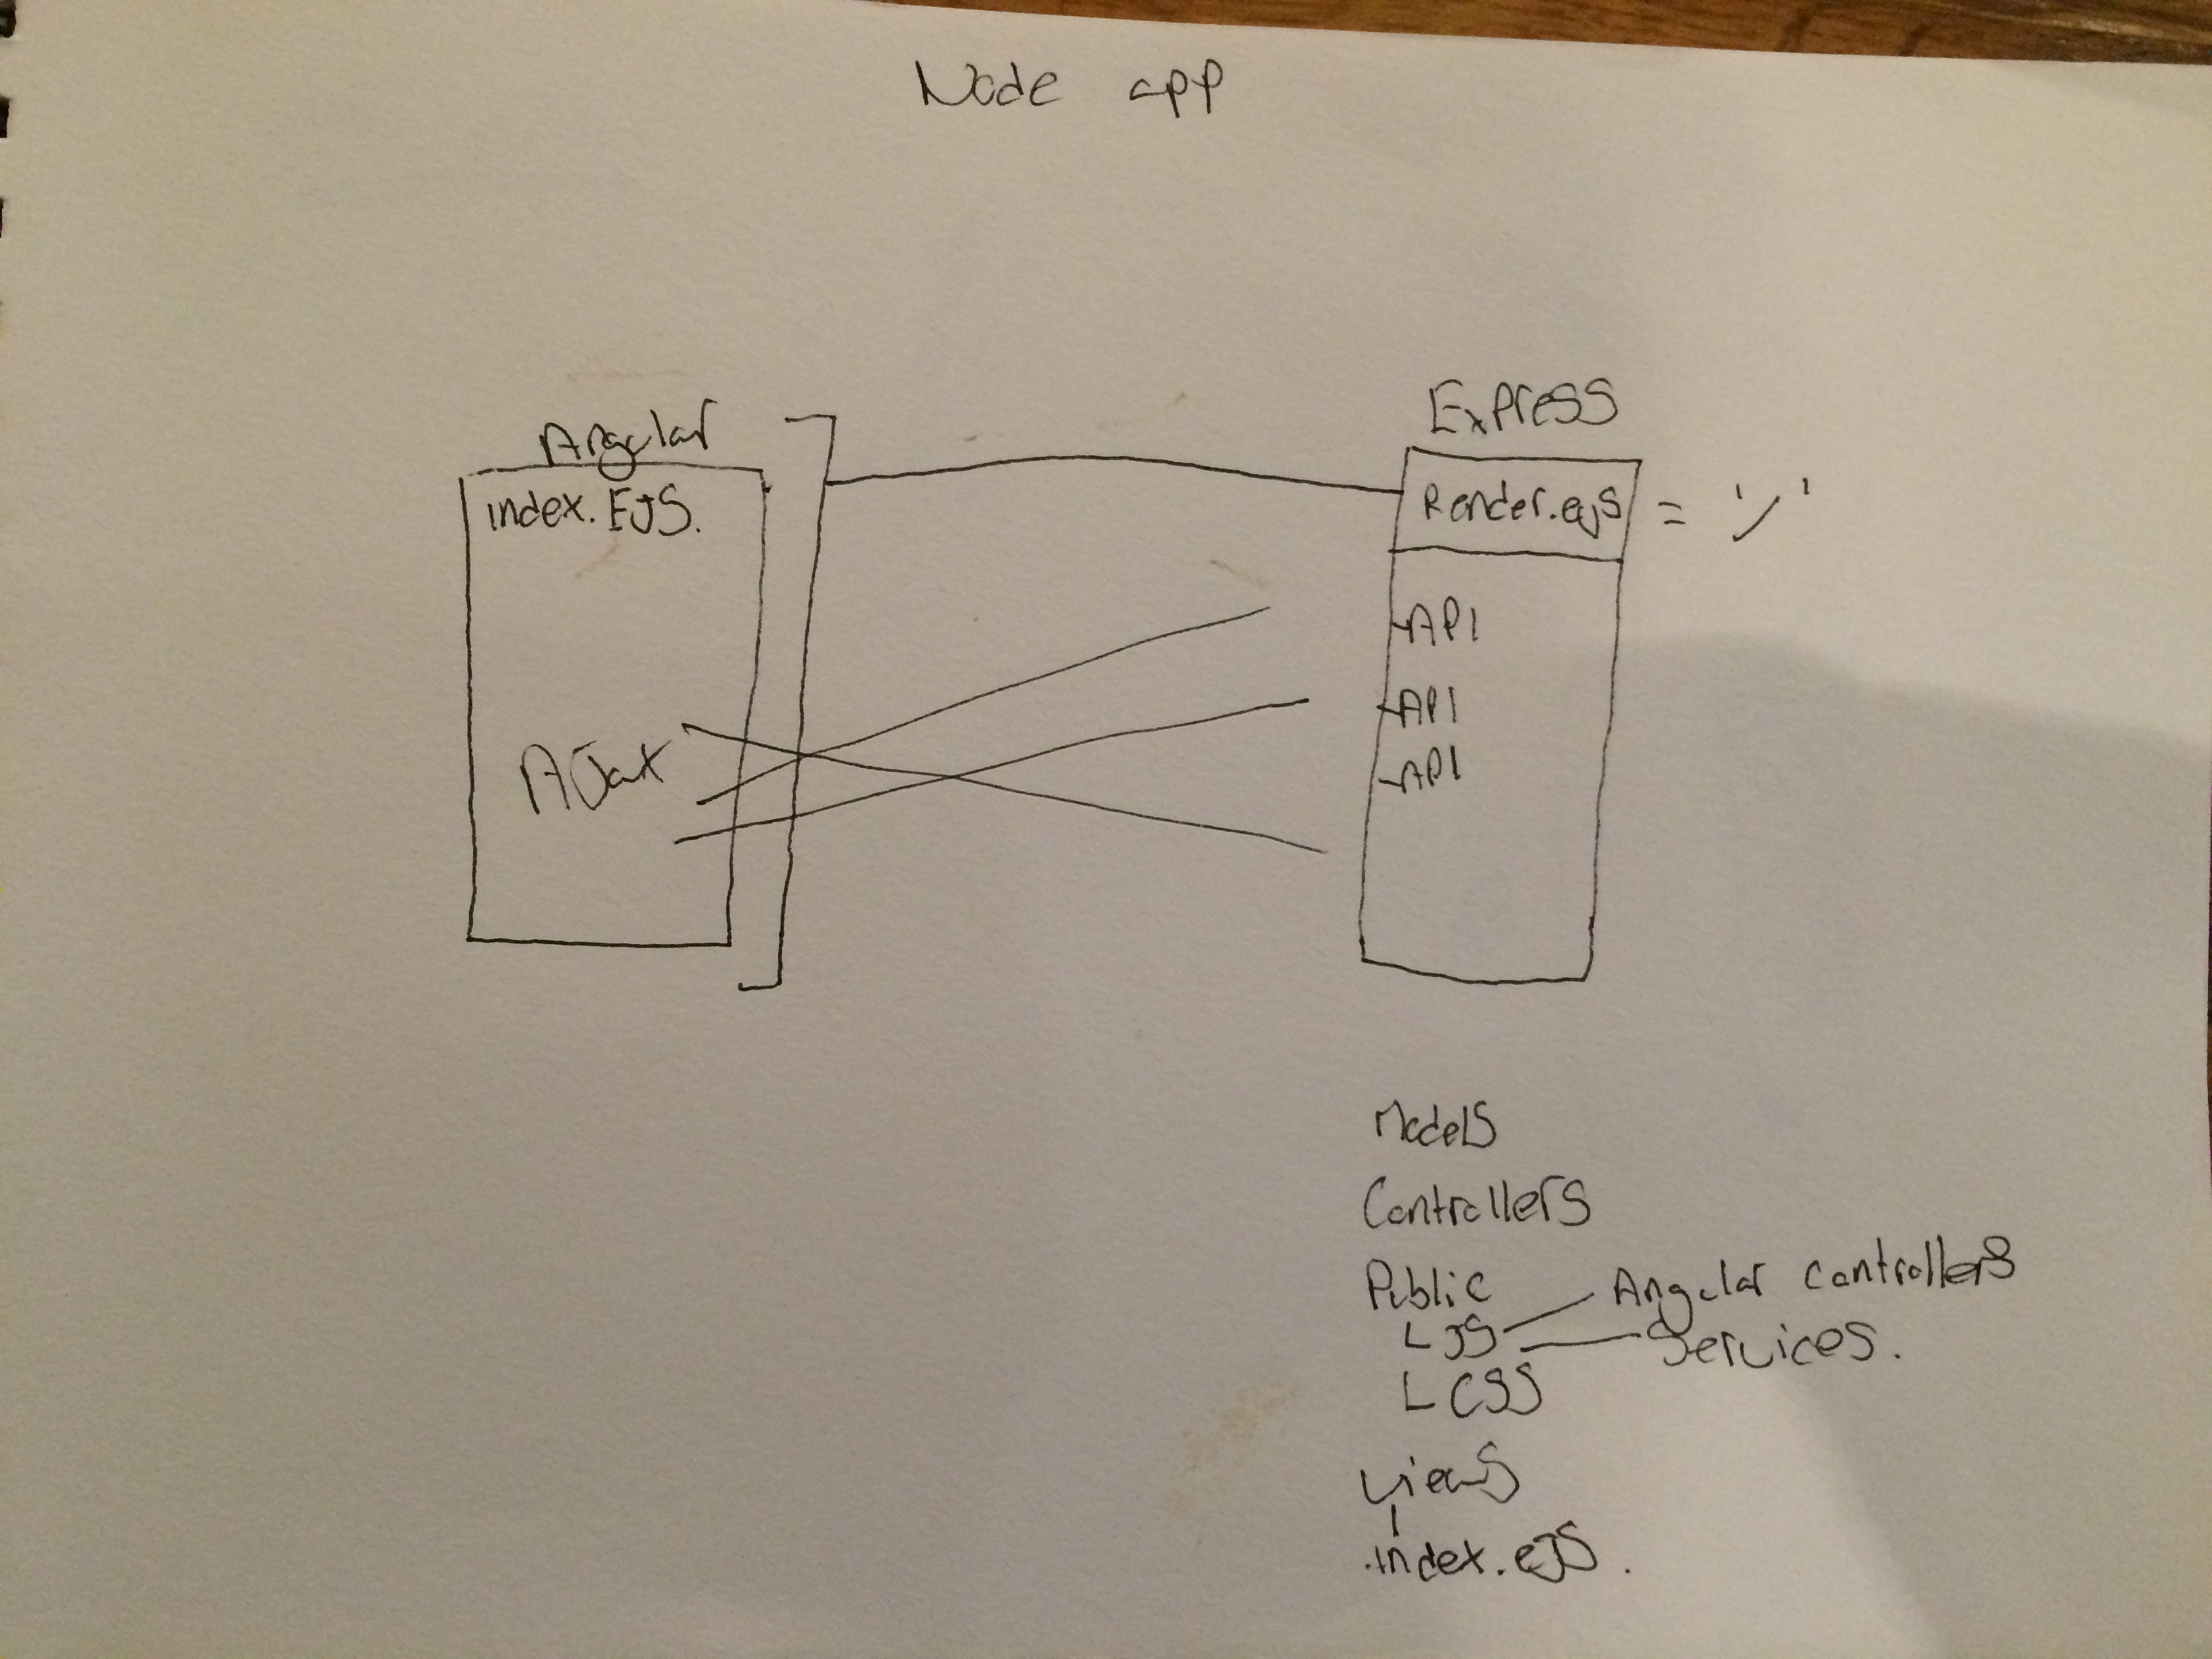 Node app
Angular
index.EJS.
AJax
Express
Render.ejs = '/'
API
API
API
Models
Controllers
Public
L JS Angular controllers
Services.
L CSS
views
index.eJS.